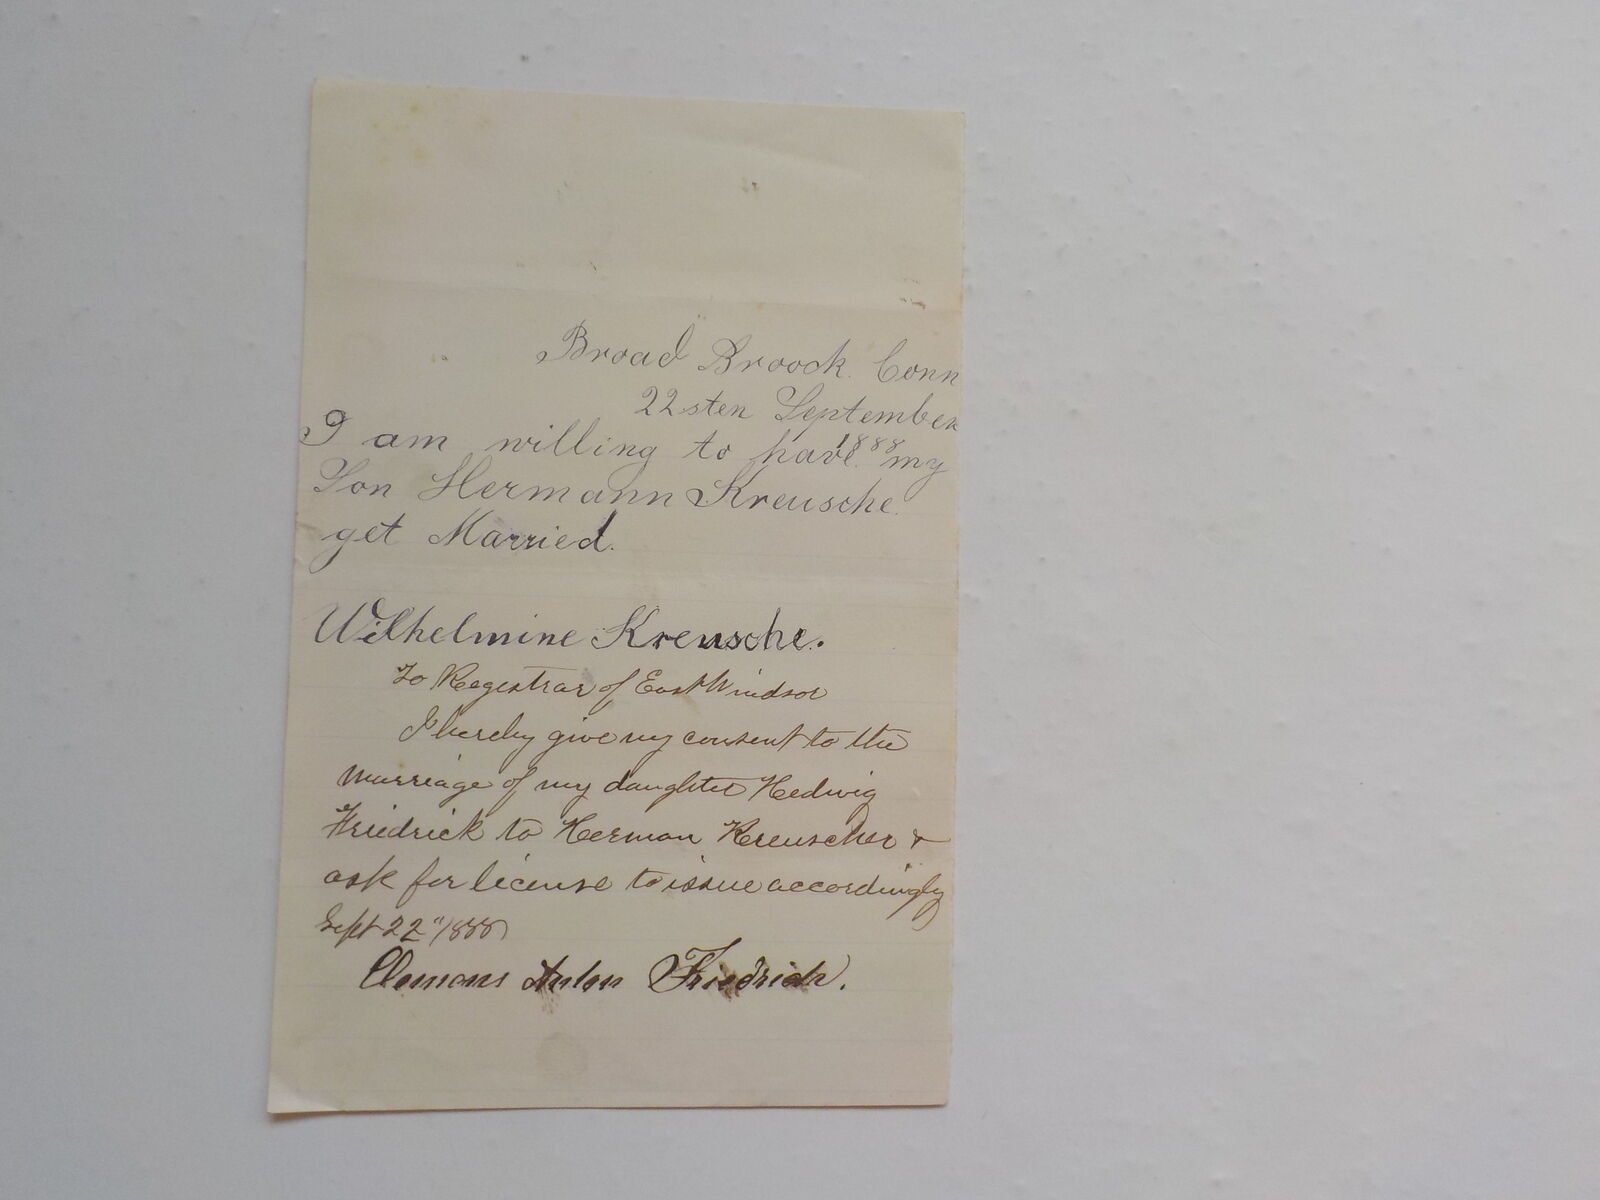 Broad Broock. Conn
22sten September
1888
I am willing to have my
Son Hermann Kreusche.
get Married.
Wilhelmine Kreusche.
To Registrar of East Windsor
I hereby give my consent to the
marriage of my daughter Hedwig
Friedrick to Herman Kreuscher &
ask for license to issue accordingly
Sept 22" 1888
Clemens Anton Friedrich.